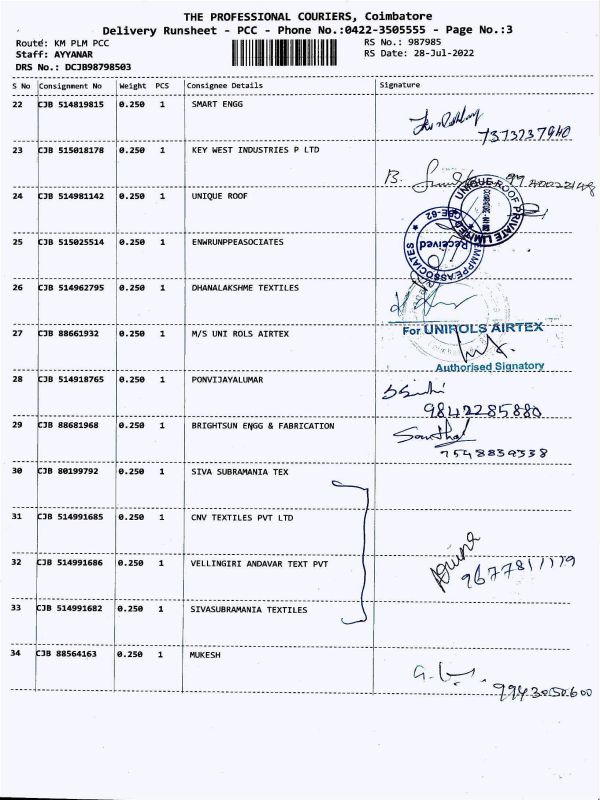 THE PROFESSIONAL COURIERS, Coimbatore
Delivery Runsheet - PCC - Phone No.:0422-3505555 - Page No.:3
Route: KM PLM PCC RS No.: 987985
Staff: AYYANAR RS Date: 28-Jul-2022
DRS No.: DCJB98798503
S No Consignment No Weight PCS Consignee Details Signature
22 CJB 514819815 0.250 1 SMART ENGG
7373737940
23 CJB 515018178 0.250 1 KEY WEST INDUSTRIES P LTD
B.
24 CJB 514981142 0.250 1 UNIQUE ROOF
UNIQUE ROOF PRIVATE LIMITED
25 CJB 515025514 0.250 1 ENWRUNPPEASOCIATES
CBE-62
Received
26 CJB 514962795 0.250 1 DHANALAKSHME TEXTILES
27 CJB 88661932 0.250 1 M/S UNI ROLS AIRTEX
For UNIROLS AIRTEX
Authorised Signatory
28 CJB 514918765 0.250 1 PONVIJAYALUMAR
9842285880
29 CJB 88681968 0.250 1 BRIGHTSUN ENGG & FABRICATION
7548839338
30 CJB 80199792 0.250 1 SIVA SUBRAMANIA TEX
31 CJB 514991685 0.250 1 CNV TEXTILES PVT LTD
32 CJB 514991686 0.250 1 VELLINGIRI ANDAVAR TEXT PVT
Aruna
33 CJB 514991682 0.250 1 SIVASUBRAMANIA TEXTILES
34 CJB 88564163 0.250 1 MUKESH
9943050600